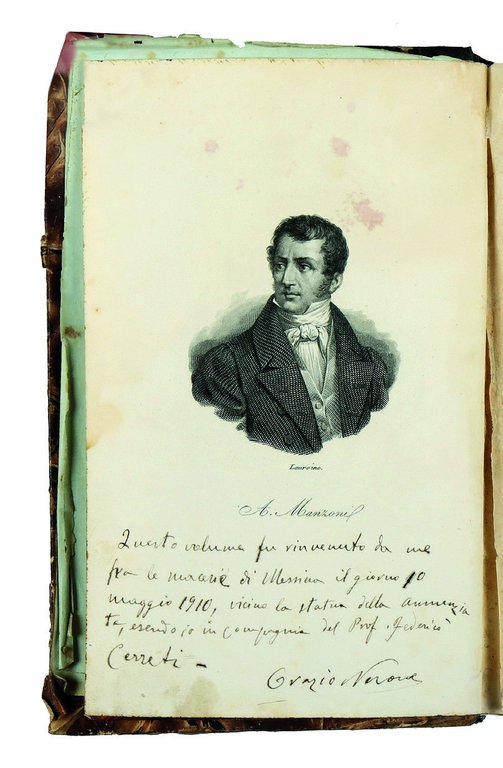 Lauroino.
A. Manzoni
Questo volume fu rinvenuto da me
fra le macerie di Messina il giorno 10
maggio 1910, vicino la statua della Annunzia
ta, esendo io in compagnia del Prof. Federico
Cerreti –
Orazio Nerone